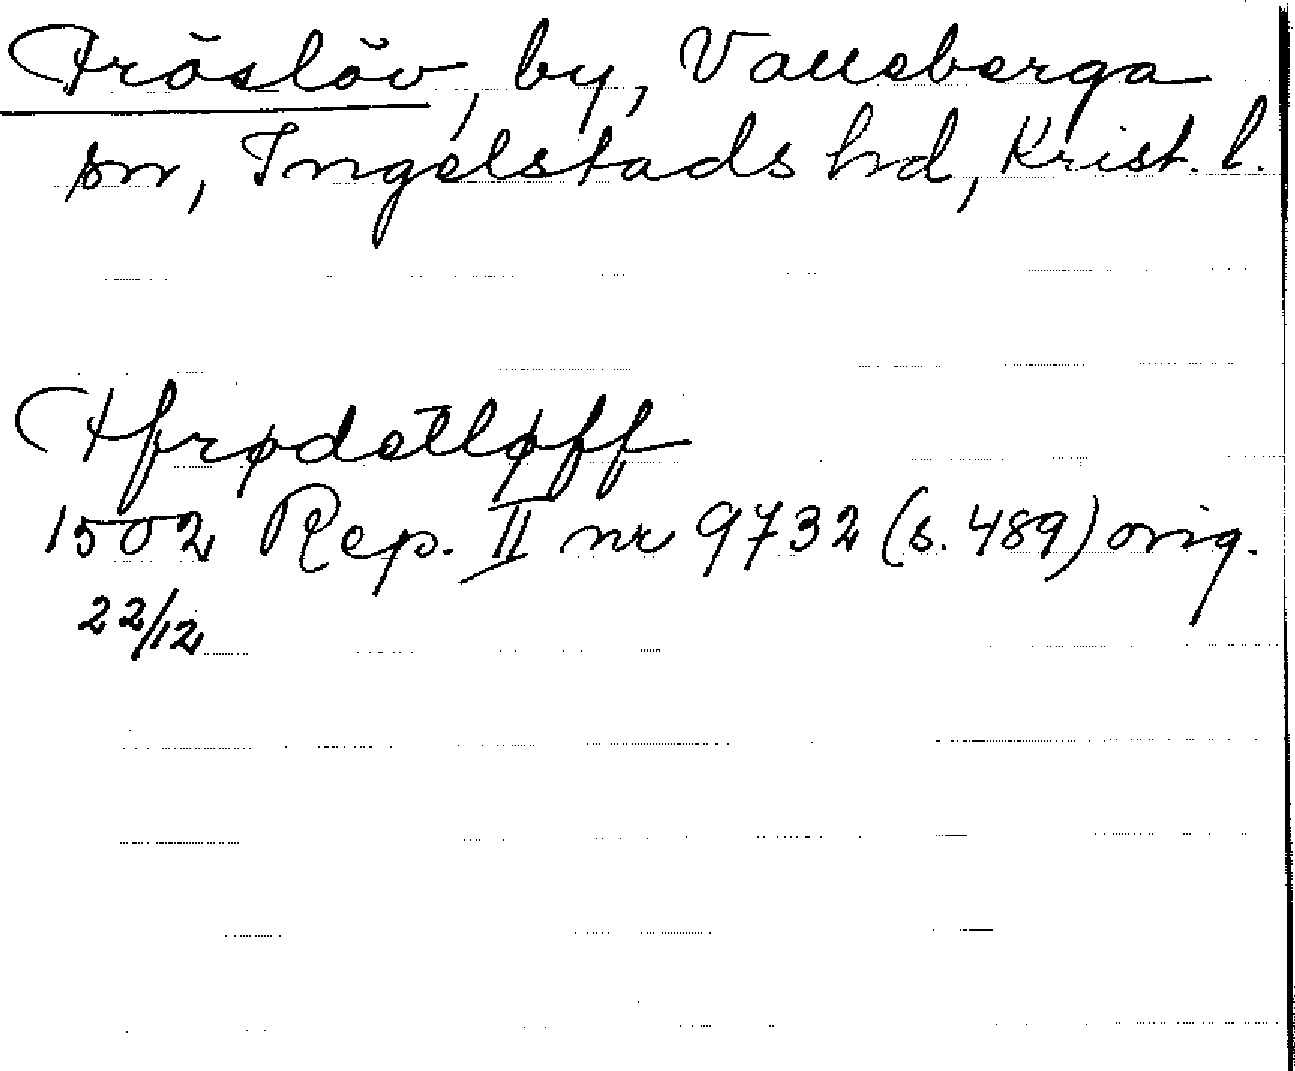 Fröslöv, by, Valleberga
sn, Ingelstads hd, Krist. l.
Ffrødetløff
1502 Rep. II nr 9732 (s. 489) orig.
22/12